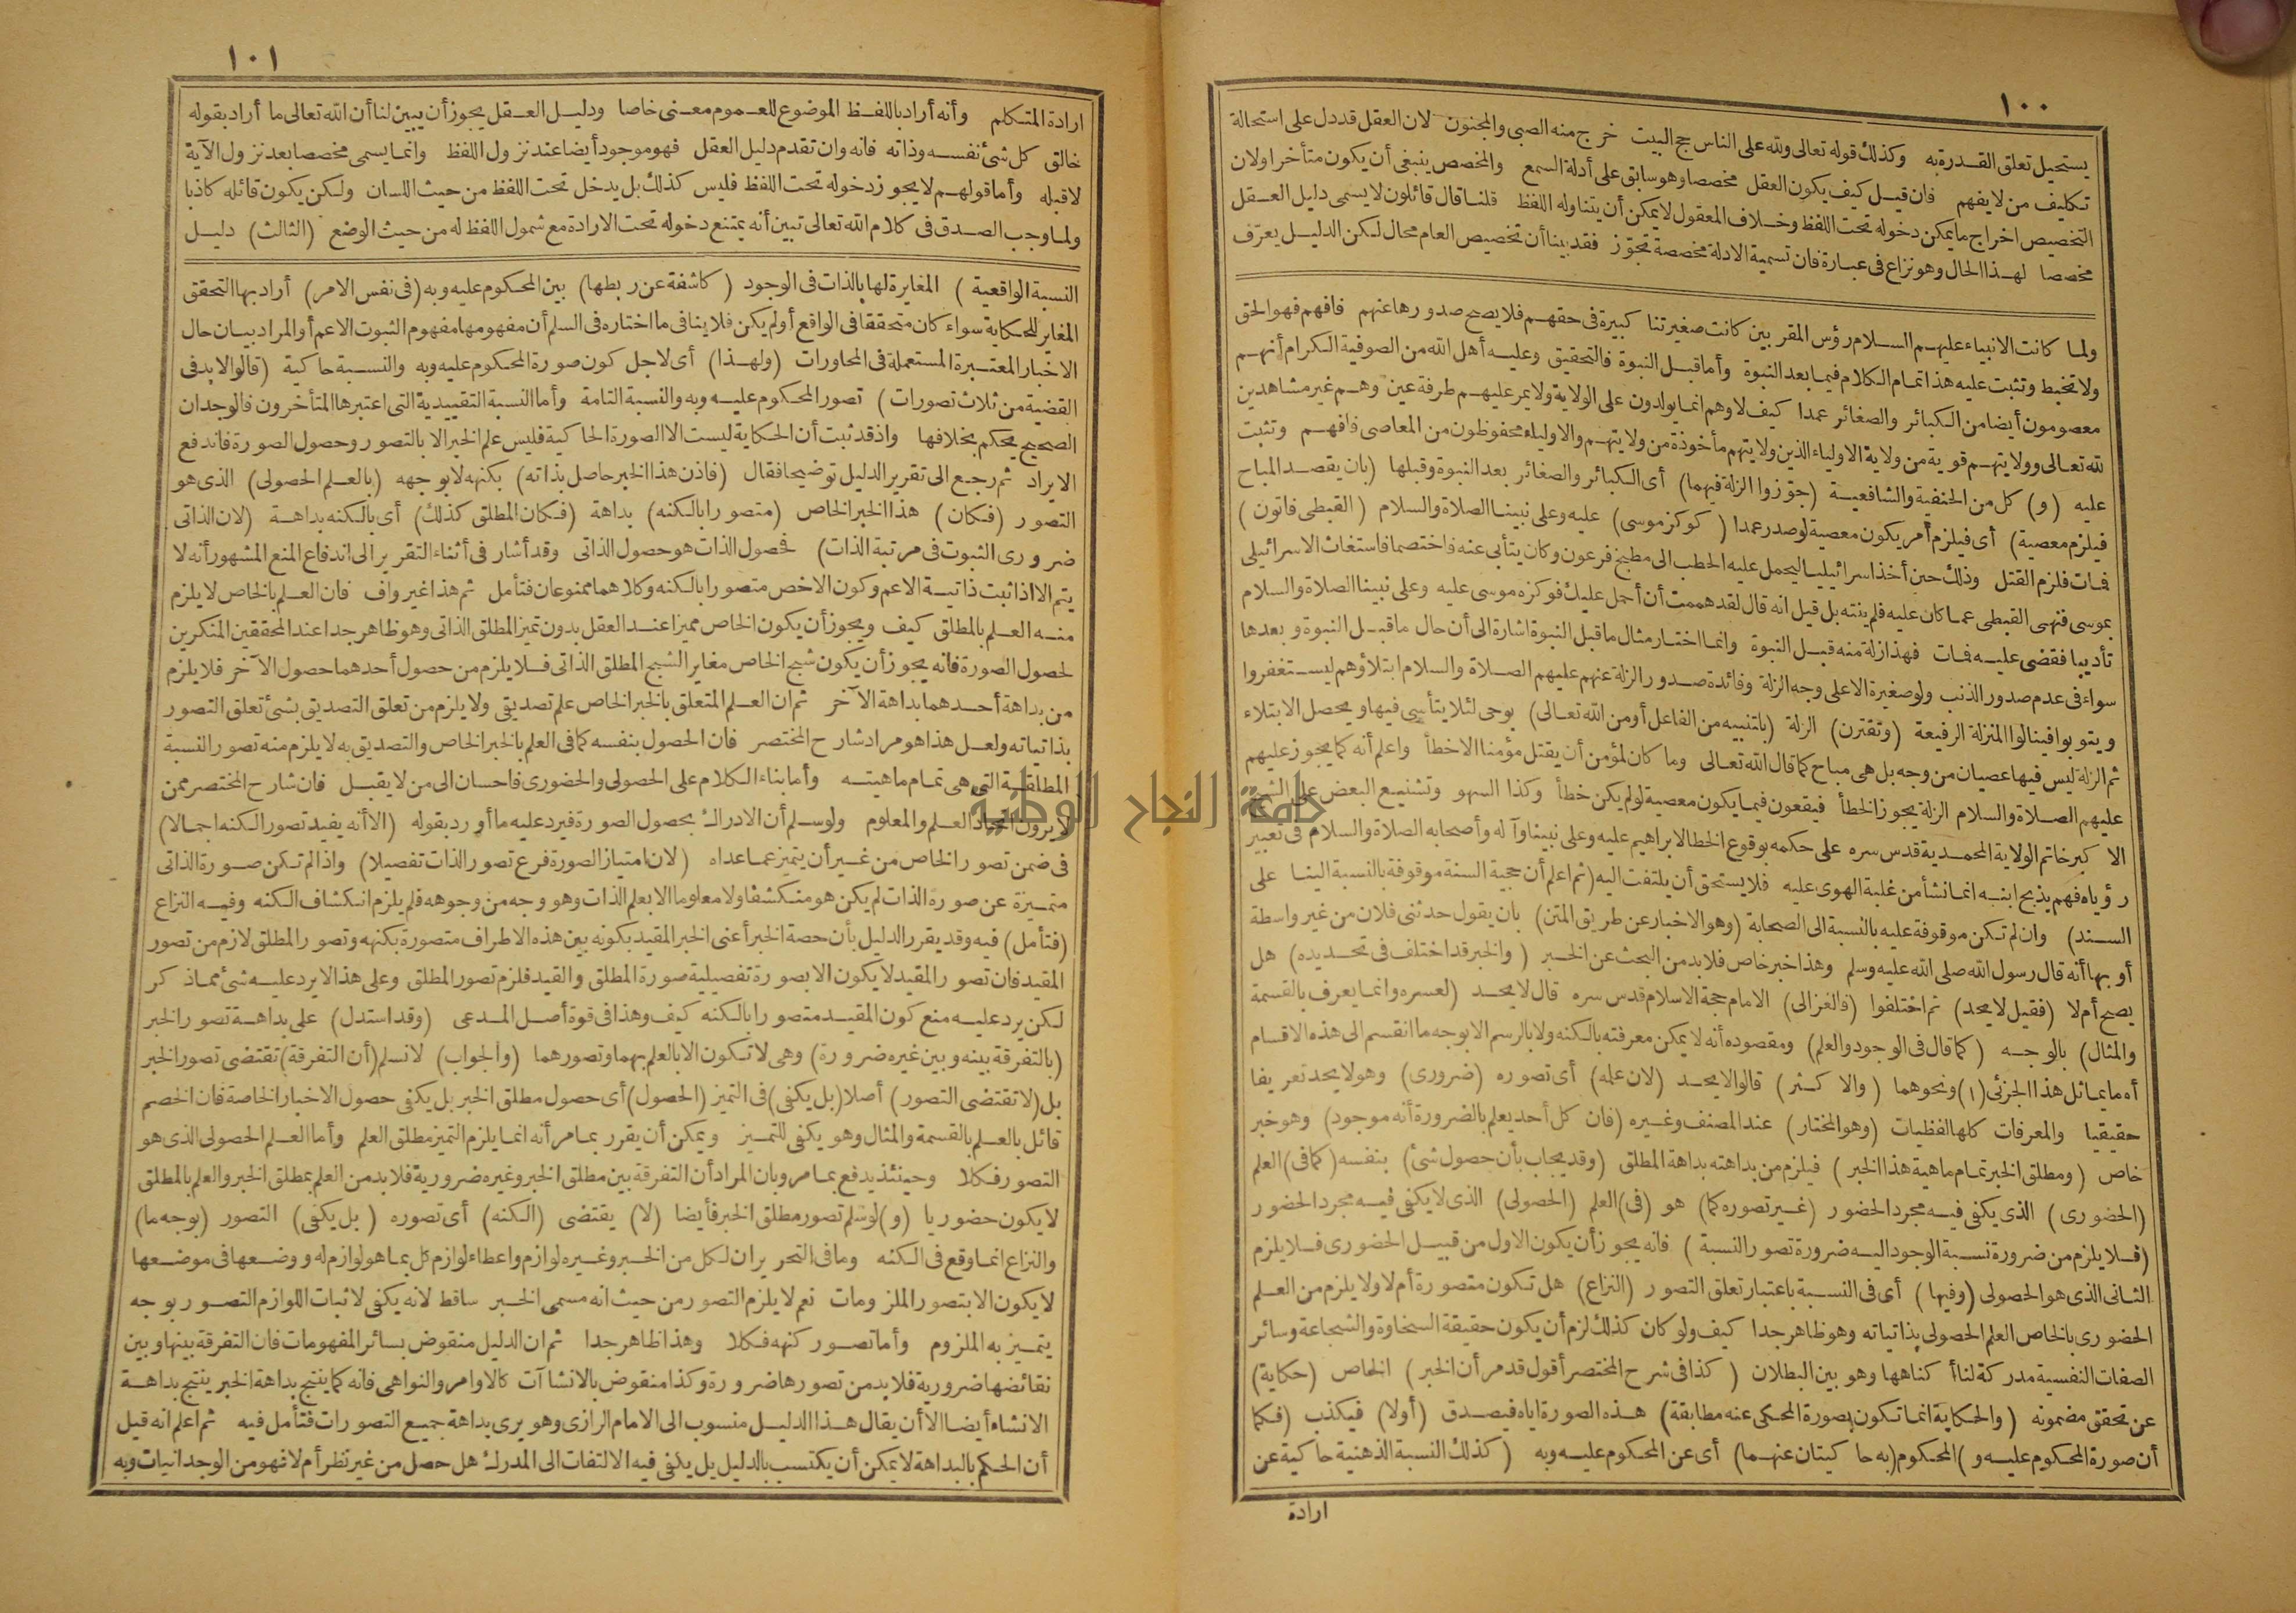 ١٠٠
يستحيل تعلق القدرة به وكذلك قوله تعالى ولله على الناس حج البيت خرج منه الصبي والمجنون لان العقل قد دل على استحالة
تكليف من لا يفهم فان قيل كيف يكون العقل مخصصا وهو سابق على أدلة السمع والمخصص ينبغي أن يكون متأخرا ولان
التخصيص اخراج ما يمكن دخوله تحت اللفظ وخلاف المعقول لا يمكن أن يتناوله اللفظ قلنا قال قائلون لا يسمى دليل العقل
مخصصا لهذا الحال وهو نزاع في عبارة فان تسمية الادلة مخصصة تجوّز فقد بينا أن تخصيص العام محال لكن الدليل يعرّف
ولما كانت الانبياء عليهم السلام رؤس المقربين كانت صغيرتنا كبيرة في حقهم فلا يصح صدورها عنهم فافهم فهو الحق
ولا تخبط وتثبت عليه هذا تمام الكلام فيما بعد النبوة وأما قبل النبوة فالتحقيق وعليه أهل الله من الصوفية الكرام أنهم
معصومون أيضا من الكبائر والصغائر عمدا كيف لا وهم انما يولدون على الولاية ولا يمر عليهم طرفة عين وهم غير مشاهدين
لله تعالى وولايتهم قوية من ولاية الاولياء الذين ولايتهم مأخوذة من ولايتهم والاولياء محفوظون من المعاصى فافهم وتثبت
عليه (و) كل من الحنفية والشافعية (جوّزوا الزلة فيهما) أى الكبائر والصغائر بعد النبوة وقبلها (بان يقصد المباح
فيلزم معصية) أى فيلزم أمر يكون معصية لو صدر عمدا (كوكز موسى) عليه وعلى نبينا الصلاة والسلام (القبطى فاتون)
فمات فلزم القتل وذلك حين أخذ اسرائيليا ليحمل عليه الحطب الى مطبخ فرعون وكان يتأبى عنه فاختصما فاستغاث الاسرائيلى
بموسى فنهى القبطى عما كان عليه فلم ينته بل قيل انه قال لقد هممت أن أحمل عليك فوكزه موسى عليه وعلى نبينا الصلاة والسلام
تأديبا فقضى عليه فمات فهذا زلة منه قبل النبوة وانما اختار مثال ما قبل النبوة اشارة الى أن حال ما قبل النبوة وبعدها
سواء في عدم صدور الذنب ولو صغيرة الا على وجه الزلة وفائدة صدور الزلة عنهم عليهم الصلاة والسلام ابتلاؤهم ليستغفروا
ويتوبوا فينالوا المنزلة الرفيعة (وتقترن) الزلة (بالتنبيه من الفاعل أو من الله تعالى) بوحى لئلا يتأسى فيها ويحصل الابتلاء
ثم الزلة ليس فيها عصيان من وجه بل هى مباح كما قال الله تعالى وما كان لمؤمن أن يقتل مؤمنا الا خطأ واعلم أنه كما يجوز عليهم
عليهم الصلاة والسلام الزلة يجوز الخطأ فيقعون فيما يكون معصية لو لم يكن خطأ وكذا السهو وتشنيع البعض على الشيخ
الاكبر خاتم الولاية المحمدية قدس سره على حكمه بوقوع الخطا لابراهيم عليه وعلى نبينا وآله وأصحابه الصلاة والسلام في تعبير
رؤياه فهم يذبح ابنه انما نشأ من غلبة الهوى عليه فلا يستحق أن يلتفت اليه (ثم اعلم أن حجية السنة موقوفة بالنسبة الينا على
السند) وان لم تكن موقوفة عليه بالنسبة الى الصحابة (وهو الاخبار عن طريق المتن) بان يقول حدثنى فلان من غير واسطة
أو بها أنه قال رسول الله صلى الله عليه وسلم وهذا خبر خاص فلا بد من البحث عن الخبر (والخبر قد اختلف في تحديده) هل
يصح أم لا (فقيل لا يحد) ثم اختلفوا (فالغزالى) الامام حجة الاسلام قدس سره قال لا يحد (لعسره وانما يعرف بالقسمة
والمثال) بالوجه (كما قال في الوجود والعلم) ومقصوده أنه لا يمكن معرفته بالكنه ولا بالرسم الا بوجه ما انقسم الى هذه الاقسام
أه ما يماثل هذا الجزئى (١) ونحوهما (والاكثر) قالوا لا يحد (لان علمه) أى تصوره (ضرورى) وهو لا يحد تعريفا
حقيقيا والمعرفات كلها لفظيات (وهو المختار) عند المصنف وغيره (فان كل أحد يعلم بالضرورة أنه موجود) وهو خبر
خاص (ومطلق الخبر تمام ماهية هذا الخبر) فيلزم من بداهته بداهة المطلق (وقد يجاب بأن حصول شئ) بنفسه (كما فى) العلم
(الحضورى) الذى يكفى فيه مجرد الحضور (غير تصوره كما) هو (فى) العلم (الحصولى) الذى لا يكفى فيه مجرد الحضور
(فلا يلزم من ضرورة نسبة الوجود اليه ضرورة تصور النسبة) فانه يجوز أن يكون الاول من قبيل الحضورى فلا يلزم
الثانى الذى هو الحصولى (وفيها) أى فى النسبة باعتبار تعلق التصور (النزاع) هل تكون متصورة أم لا ولا يلزم من العلم
الحضورى بالخاص العلم الحصولى بذاتياته وهو ظاهر جدا كيف ولو كان كذلك لزم أن يكون حقيقة السخاوة والشجاعة وسائر
الصفات النفسية مدركة لنا أكناهها وهو بين البطلان (كذا فى شرح المختصر أقول قد مر أن الخبر) الخاص (حكاية)
عن تحقق مضمونه (والحكاية انما تكون بصورة المحكى عنه مطابقة) هذه الصورة اياه فيصدق (أولا) فيكذب (فكما
أن صورة المحكوم عليه و) المحكوم (به حاكيتان عنهما) أى عن المحكوم عليه وبه (كذلك النسبة الذهنية حاكية عن
ارادة
١٠١
ارادة المتكلم وأنه أراد باللفظ الموضوع للعموم معنى خاصا ودليل العقل يجوز أن يبين لنا أن الله تعالى ما أراد بقوله
خالق كل شئ نفسه وذاته فانه وان تقدم دليل العقل فهو موجود أيضا عند نزول اللفظ وانما يسمى مخصصا بعد نزول الآية
لا قبله وأما قولهم لا يجوز دخوله تحت اللفظ فليس كذلك بل يدخل تحت اللفظ من حيث اللسان ولكن يكون قائله كاذبا
ولما وجب الصدق فى كلام الله تعالى تبين أنه يمتنع دخوله تحت الارادة مع شمول اللفظ له من حيث الوضع (الثالث) دليل
النسبة الواقعية) المغايرة لها بالذات فى الوجود (كاشفة عن ربطها) بين المحكوم عليه وبه (فى نفس الامر) أراد بها التحقق
المغاير للحكاية سواء كان متحققا فى الواقع أو لم يكن فلا ينافى ما اختاره فى السلم أن مفهومها مفهوم الثبوت الاعم أو المراد بيان حال
الاخبار المعتبرة المستعملة فى المحاورات (ولهذا) أى لاجل كون صورة المحكوم عليه وبه والنسبة حاكية (قالوا لا بد فى
القضية من ثلاث تصورات) تصور المحكوم عليه وبه والنسبة التامة وأما النسبة التقييدية التى اعتبرها المتأخرون فالوجدان
الصحيح يحكم بخلافها واذ قد ثبت أن الحكاية ليست الا الصورة الحاكية فليس علم الخبر الا بالتصور وحصول الصورة فاندفع
الايراد ثم رجع الى تقرير الدليل توضيحا فقال (فاذن هذا الخبر حاصل بذاته) بكنهه لا بوجهه (بالعلم الحصولى) الذى هو
التصور (فكان) هذا الخبر الخاص (متصورا بالكنه) بداهة (فكان المطلق كذلك) أى بالكنه بداهة (لان الذاتى
ضرورى الثبوت فى مرتبة الذات) فحصول الذات هو حصول الذاتى وقد أشار فى أثناء التقرير الى اندفاع المنع المشهور أنه لا
يتم الا اذا ثبت ذاتية الاعم وكون الاخص متصورا بالكنه وكلاهما ممنوعان فتأمل ثم هذا غير واف فان العلم بالخاص لا يلزم
منه العلم بالمطلق كيف ويجوز أن يكون الخاص مميزا عند العقل بدون تميز المطلق الذاتى وهو ظاهر جدا عند المحققين المنكرين
لحصول الصورة فانه يجوز أن يكون شبح الخاص مغاير الشبح المطلق الذاتى فلا يلزم من حصول أحدهما حصول الآخر فلا يلزم
من بداهة أحدهما بداهة الآخر ثم ان العلم المتعلق بالخبر الخاص علم تصديقى ولا يلزم من تعلق التصديق بشئ تعلق التصور
بذاتياته ولعل هذا هو مراد شارح المختصر فان الحصول بنفسه كما فى العلم بالخبر الخاص والتصديق به لا يلزم منه تصور النسبة
المطلقة التى هى تمام ماهيته وأما بناء الكلام على الحصولى والحضورى فاحسان الى من لا يقبل فان شارح المختصر ممن
لا يرون اتحاد العلم والمعلوم ولو سلم أن الادراك بحصول الصورة فيرد عليه ما أورد بقوله (الا أنه يفيد تصور الكنه اجمالا)
فى ضمن تصور الخاص من غير أن يتميز عما عداه (لان امتياز الصورة فرع تصور الذات تفصيلا) واذا لم تكن صورة الذاتى
متميزة عن صورة الذات لم يكن هو منكشفا ولا معلوما الا بعلم الذات وهو وجه من وجوهه فلم يلزم انكشاف الكنه وفيه النزاع
(فتأمل) فيه وقد يقرر الدليل بأن حصة الخبر أعنى الخبر المقيد بكونه بين هذه الاطراف متصورة بكنهه وتصور المطلق لازم من تصور
المقيد فان تصور المقيد لا يكون الا بصورة تفصيلية صورة المطلق والقيد فلزم تصور المطلق وعلى هذا لا يرد عليه شئ مما ذكر
لكن يرد عليه منع كون المقيد متصورا بالكنه كيف وهذا فى قوة أصل المدعى (وقد استدل) على بداهة تصور الخبر
(بالتفرقة بينه وبين غيره ضرورة) وهى لا تكون الا بالعلم بهما وتصورهما (والجواب) لا نسلم (أن التفرقة) تقتضى تصور الخبر
بل (لا تقتضى التصور) أصلا (بل يكفى) فى التميز (الحصول) أى حصول مطلق الخبر بل يكفى حصول الاخبار الخاصة فان الخصم
قائل بالعلم بالقسمة والمثال وهو يكفى للتميز ويمكن أن يقرر بما مر أنه انما يلزم التميز مطلق العلم وأما العلم الحصولى الذى هو
التصور فكلا وحينئذ يدفع بما مر وبان المراد أن التفرقة بين مطلق الخبر وغيره ضرورية فلا بد من العلم بمطلق الخبر والعلم بالمطلق
لا يكون حضوريا (و) لو سلم تصور مطلق الخبر فأيضا (لا) يقتضى (الكنه) أى تصوره (بل يكفى) التصور (بوجه ما)
والنزاع انما وقع فى الكنه وما فى التحرير ان لكل من الخبر وغيره لوازم واعطاء لوازم كل بما هو لوازم له ووضعها فى موضعها
لا يكون الا بتصور الملزومات نعم لا يلزم التصور من حيث انه مسمى الخبر ساقط لانه يكفى لاثبات اللوازم التصور بوجه
يتميز به الملزوم وأما تصور كنهه فكلا وهذا ظاهر جدا ثم ان الدليل منقوض بسائر المفهومات فان التفرقة بينها وبين
نقائضها ضرورية فلا بد من تصورها ضرورة وكذا منقوض بالانشاآت كالاوامر والنواهى فانه كما ينتج بداهة الخبر ينتج بداهة
الانشاء أيضا الا أن يقال هذا الدليل منسوب الى الامام الرازى وهو يرى بداهة جميع التصورات فتأمل فيه ثم اعلم انه قيل
أن الحكم بالبداهة لا يمكن أن يكتسب بالدليل بل يكفى فيه الالتفات الى المدرك هل حصل من غير نظر أم لا فهو من الوجدانيات وبه
جامعة النجاح الوطنية